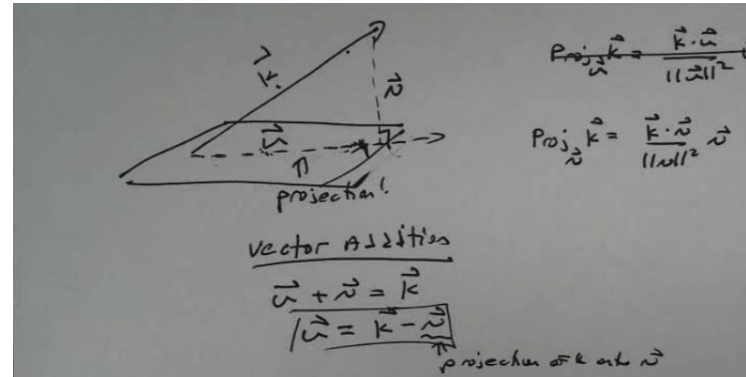 k⃗
n⃗
u⃗
projection!
Proj_u⃗ k⃗ = k⃗·u⃗ / ||u⃗||²
Proj_n⃗ k⃗ = k⃗·n⃗ / ||n||² n⃗
Vector Addition
u⃗ + n⃗ = k⃗
u⃗ = k⃗ - n⃗
projection of k onto n⃗